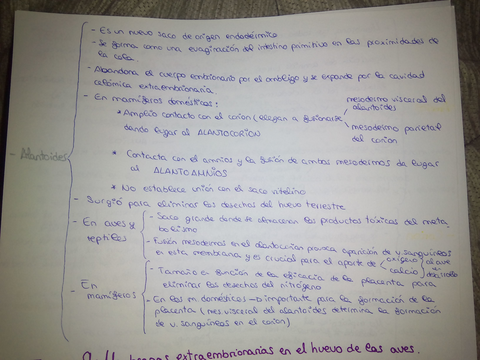 - Es un nuevo saco de origen endodérmico
- Se forma como una evaginación del intestino primitivo en las proximidades de
la cola
- Abandona el cuerpo embrionario por el ombligo y se expande por la cavidad
celómica extraembrionaria
- En mamíferos domésticos:
mesodermo visceral del
alantoides
* Amplio contacto con el corion (llegan a fusionarse
mesodermo parietal
del corion
dando lugar al ALANTOCORION
- Alantoides
* Contacta con el amnios y la fusión de ambos mesodermos da lugar
al ALANTOAMNIOS
* No establece unión con el saco vitelino
- Surgió para eliminar los desechos del huevo terrestre
- En aves y
reptiles
- Saco grande donde se almacenan los productos tóxicos del meta
bolismo
- Fusión mesodermos en el alantocorion provoca aparición de v. sanguíneos
en esta membrana, y es crucial para el aporte de
oxígeno
calcio
al ave
en
desarrollo
- En
mamíferos
- Tamaño en función de la eficacia de la placenta para
eliminar los desechos del nitrógeno
- En los m. domésticos → importante para la formación de la
placenta (mes visceral del alantoides determina la formación
de v. sanguíneos en el corion)
extraembrionarias en el huevo de las aves.